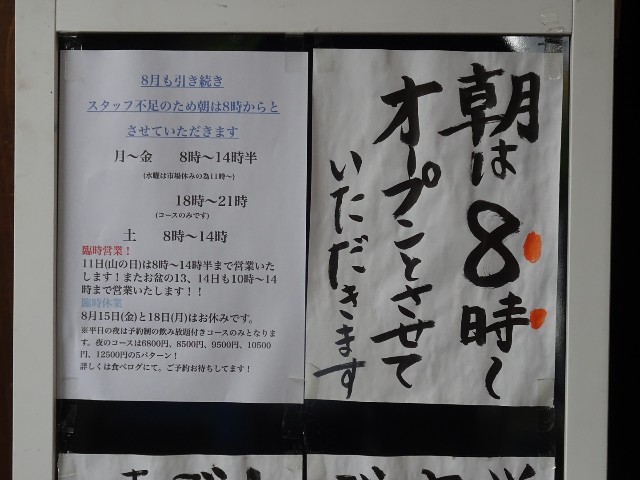 8月も引き続き
スタッフ不足のため朝は8時からと
させていただきます
月～金 8時～14時半
(水曜は市場休みの為11時～)
18時～21時
(コースのみです)
土 8時～14時
臨時営業！
11日(山の日)は8時～14時半まで営業いた
します！またお盆の13、14日も10時～14
時まで営業いたします！！
臨時休業
8月15日(金)と18日(月)はお休みです。
※平日の夜は予約制の飲み放題付きコースのみとなりま
す。夜のコースは6800円、8500円、9500円、10500
円、12500円の5パターン！
詳しくは食べログにて。ご予約お待ちしてます！
朝は8時～
オープンとさせて
いただきます